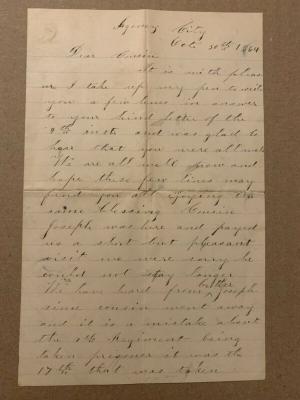 Agency City
Oct 30th 1864
Dear Cousin
It is with pleas
ur I take up my pen to write
you a few lines in answer
to your kind letter of the
9th inst and was glad to
hear that you were all well
We are all well now and
hope these few lines may
find you all enjoying the
same blessing Cousin
Joseph was here and payed
us a short but pleasant
visit we were sorry he
could not stay longer
We have heard from brother Joseph
since cousin went away
and it is a mistake about
the Regiment being
taken prisoner it was the
17th that was taken